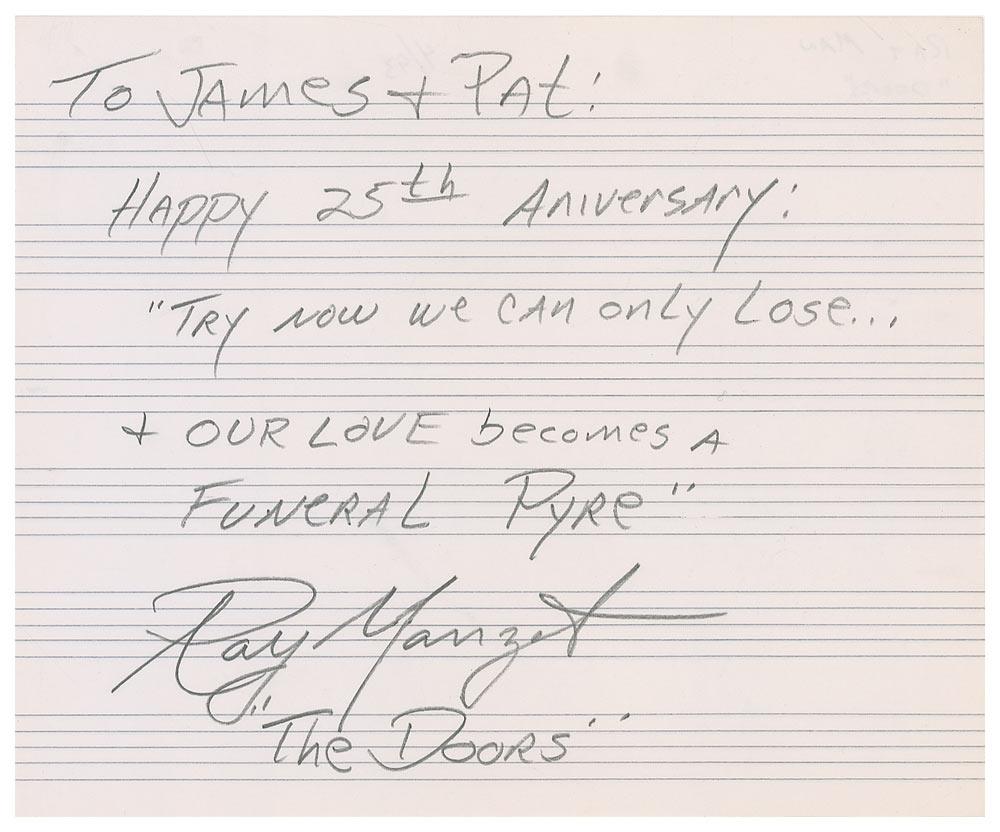 To James + Pat:
Happy 25th Aniversary:
"Try now we can only lose...
+ our love becomes a
Funeral Pyre"
Ray Manzarek
"The Doors"